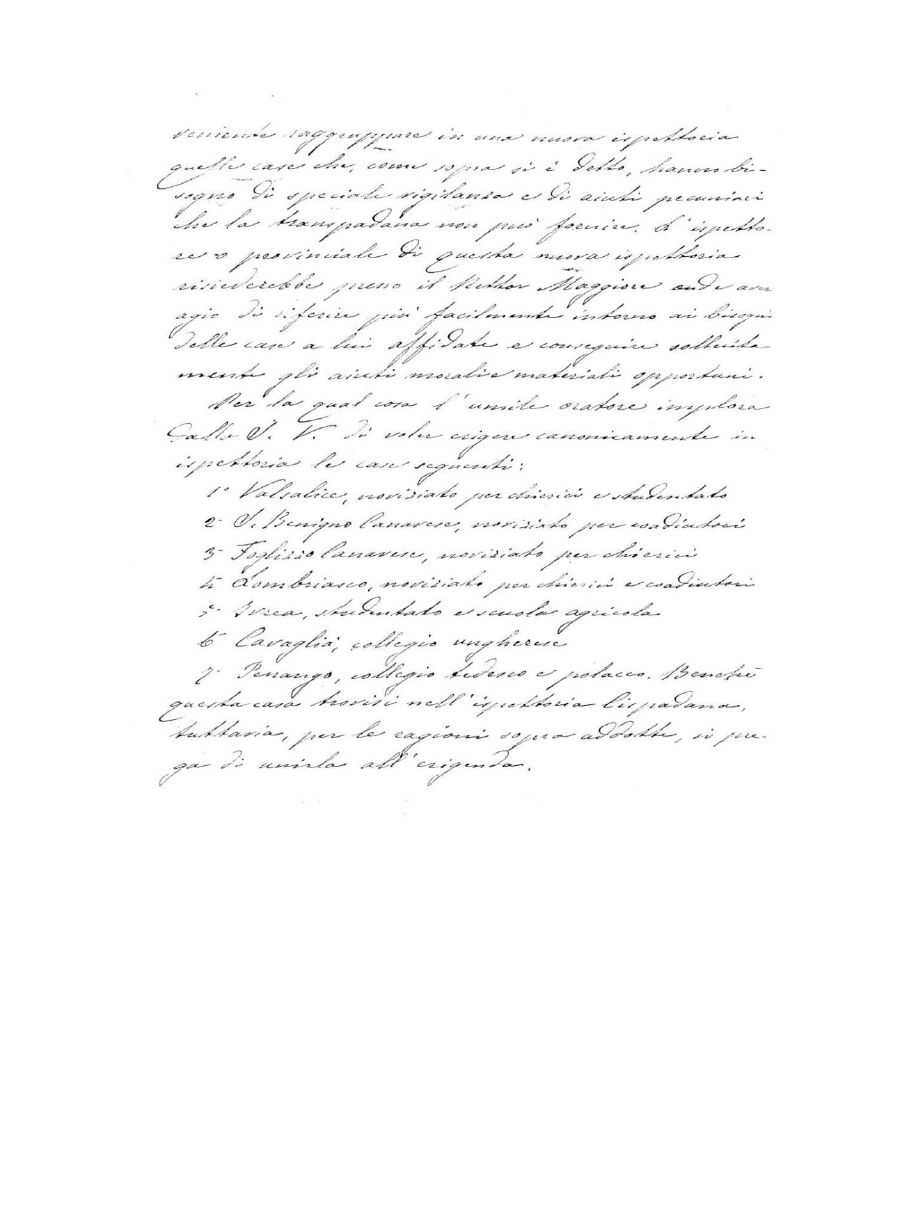 veniente raggruppare in una nuova ispettoria
quelle case che, come sopra si è detto, hanno bi-
sogno di speciale vigilanza e di aiuti pecuniari
che la transpadana non può fornire. L'ispetto-
re o provinciale di questa nuova ispettoria
risiederebbe presso il Rettor Maggiore onde aver
agio di riferire più facilmente intorno ai bisogni
delle case a lui affidate e conseguire sollecita-
mente gli aiuti morali e materiali opportuni.
Per la qual cosa l'umile oratore implora
dalla S. V. di voler erigere canonicamente in
ispettoria le case seguenti:
1° Valsalice, noviziato per chierici e studentato
2° S. Benigno Canavese, noviziato per coadiutori
3° Foglizzo Canavese, noviziato per chierici
4° Lombriasco, noviziato per chierici e coadiutori
5° Ivrea, studentato e scuola agricola
6° Cavaglià, collegio ungherese
7° Penango, collegio tedesco e polacco. Benchè
questa casa trovisi nell'ispettoria Cispadana,
tuttavia, per le ragioni sopra addotte, si pre-
ga di unirla all'erigenda.